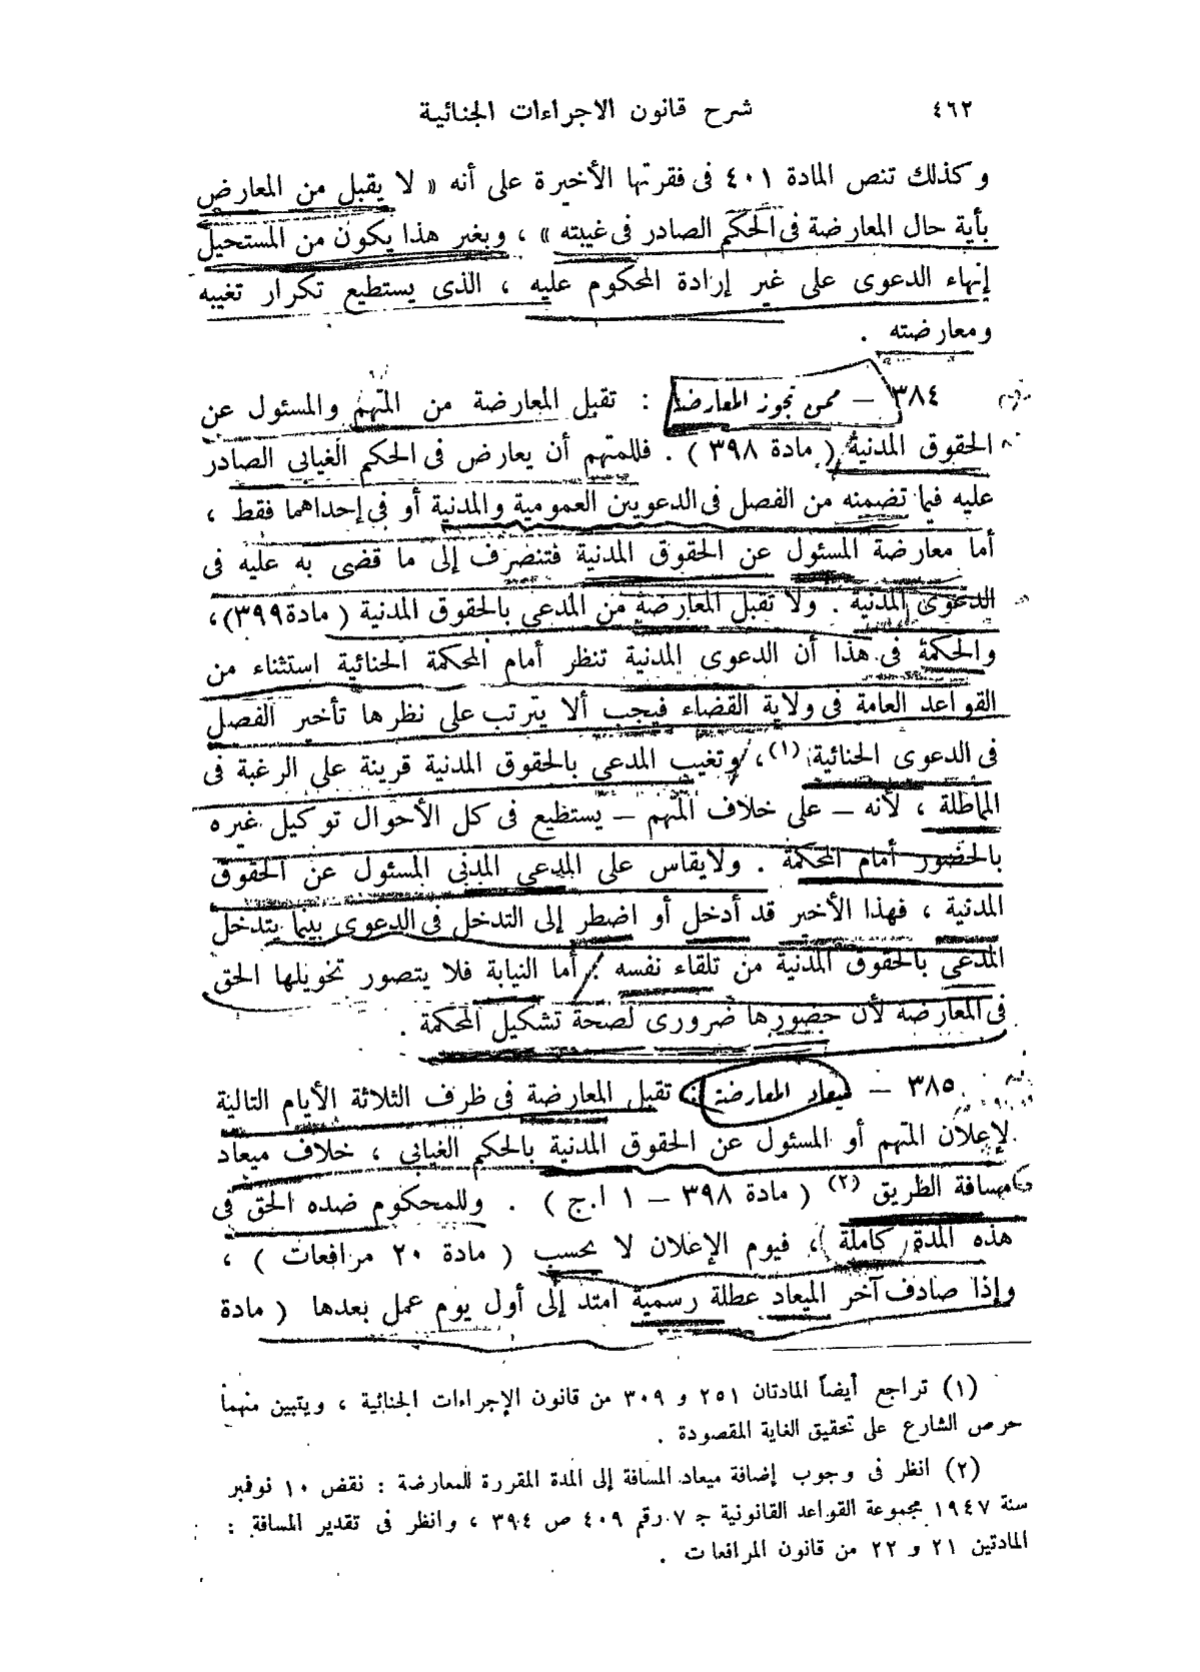 ٤٦٢
شرح قانون الاجراءات الجنائية
وكذلك تنص المادة ٤٠١ فى فقرتها الأخيرة على أنه « لا يقبل من المعارض
بأية حال المعارضة فى الحكم الصادر فى غيبته » ، وبغير هذا يكون من المستحيل
إنهاء الدعوى على غير إرادة المحكوم عليه ، الذى يستطيع تكرار تغيبه
ومعارضته .
٣٨٤ – ممن تجوز المعارضة : تقبل المعارضة من المتهم والمسئول عن
الحقوق المدنية ( مادة ٣٩٨ ) . فللمتهم أن يعارض فى الحكم الغيابى الصادر
عليه فيما تضمنه من الفصل فى الدعويين العمومية والمدنية أو فى إحداهما فقط ،
أما معارضة المسئول عن الحقوق المدنية فتنصرف إلى ما قضى به عليه فى
الدعوى المدنية . ولا تقبل المعارضة من المدعى بالحقوق المدنية ( مادة ٣٩٩) ،
والحكمة فى هذا أن الدعوى المدنية تنظر أمام المحكمة الجنائية استثناء من
القواعد العامة فى ولاية القضاء فيجب ألا يترتب على نظرها تأخير الفصل
فى الدعوى الجنائية (١) ، وتغيب المدعى بالحقوق المدنية قرينة على الرغبة فى
المماطلة ، لأنه – على خلاف المتهم – يستطيع فى كل الأحوال توكيل غيره
بالحضور أمام المحكمة . ولايقاس على المدعى المدنى المسئول عن الحقوق
المدنية ، فهذا الأخير قد أدخل أو اضطر إلى التدخل فى الدعوى بينما يتدخل
المدعى بالحقوق المدنية من تلقاء نفسه . أما النيابة فلا يتصور تخويلها الحق
فى المعارضة لأن حضورها ضرورى لصحة تشكيل المحكمة .
٣٨٥ – ميعاد المعارضة : تقبل المعارضة فى ظرف الثلاثة الأيام التالية
لإعلان المتهم أو المسئول عن الحقوق المدنية بالحكم الغيابى ، خلاف ميعاد
مسافة الطريق (٢) ( مادة ٣٩٨ – ١ ا.ج ) . وللمحكوم ضده الحق فى
هذه المدة كاملة ، فيوم الإعلان لا يحسب ( مادة ٢٠ مرافعات ) ،
وإذا صادف آخر الميعاد عطلة رسمية امتد إلى أول يوم عمل بعدها ( مادة
(١) تراجع أيضاً المادتان ٢٥١ و ٣٠٩ من قانون الإجراءات الجنائية ، ويتبين منهما
حرص الشارع على تحقيق الغاية المقصودة .
(٢) انظر فى وجوب إضافة ميعاد المسافة إلى المدة المقررة للمعارضة : نقض ١٠ نوفمبر
سنة ١٩٤٧ مجموعة القواعد القانونية جـ ٧ رقم ٤٠٩ ص ٣٩٤ ، وانظر فى تقدير المسافة :
المادتين ٢١ و ٢٢ من قانون المرافعات .